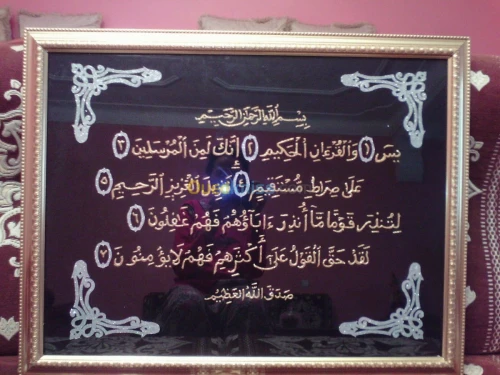 بِسْمِ اللَّهِ الرَّحْمَنِ الرَّحِيمِ
يسَ ١ وَالْقُرْءَانِ الْحَكِيمِ ٢ إِنَّكَ لَمِنَ الْمُرْسَلِينَ ٣
عَلَى صِرَاطٍ مُسْتَقِيمٍ ٤ تَنْزِيلَ الْعَزِيزِ الرَّحِيمِ ٥
لِتُنْذِرَ قَوْمًا مَّا أُنْذِرَ ءَابَاؤُهُمْ فَهُمْ غَفِلُونَ ٦
لَقَدْ حَقَّ الْقَوْلُ عَلَى أَكْثَرِهِمْ فَهُمْ لَا يُؤْمِنُونَ ٧
صدق اللهُ العظيم